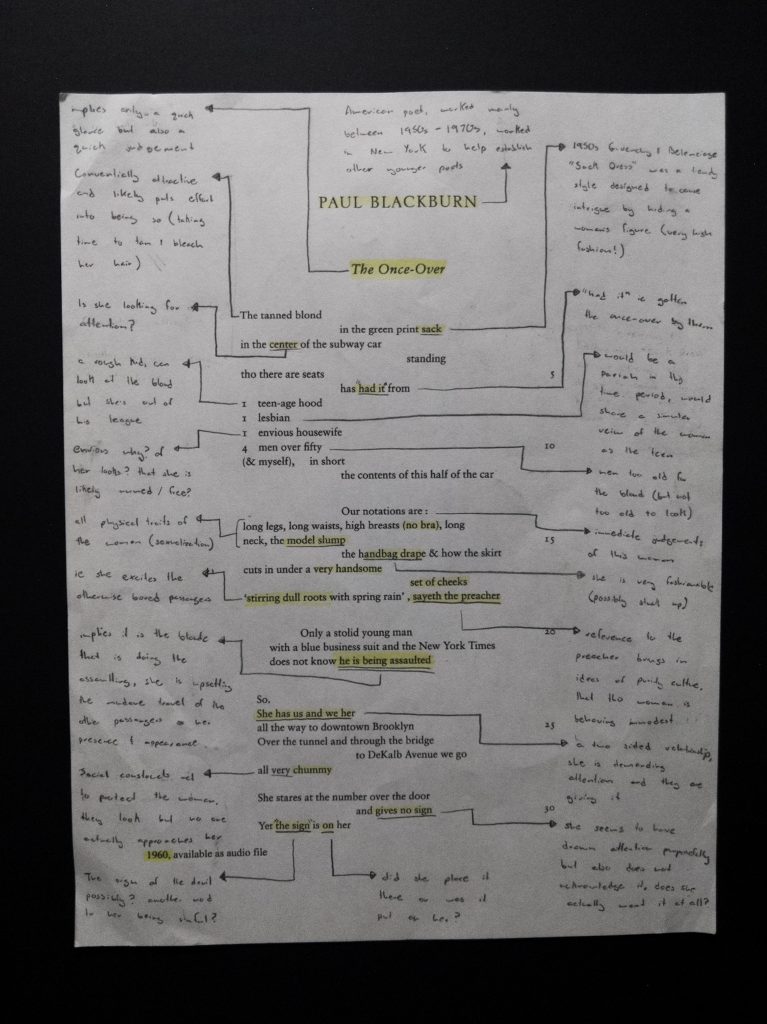 implies only a quick
glance but also a
quick judgement
American poet, worked mainly
between 1950s - 1970s, worked
in New York to help establish
other younger poets
PAUL BLACKBURN
The Once-Over
1950s Givenchy & Balenciaga
"Sack Dress" was a trendy
style designed to cause
intrigue by hiding a
womans figure (very high
fashion!)
Conventially attractive
and likely puts effort
into being so (taking
time to tan & bleach
her hair)
Is she looking for
attention?
a rough kid, can
look at the blond
but she's out of
his league
envious why? of
her looks? that she is
likely unwed / free?
all physical traits of
the woman (sexualization)
ie she excites the
otherwise bored passengers
implies it is the blonde
that is doing the
assaulting, she is upsetting
the mundane travel of the
other passengers w her
presence & appearance
Social constructs act
to protect the woman,
they look but no one
actually approaches her
The tanned blond
in the green print sack
in the center of the subway car
standing
tho there are seats 5
has "had it" from
1 teen-age hood
1 lesbian
1 envious housewife
4 men over fifty 10
(& myself), in short
the contents of this half of the car
Our notations are :
long legs, long waists, high breasts (no bra), long
neck, the model slump 15
the handbag drape & how the skirt
cuts in under a very handsome
set of cheeks
'stirring dull roots with spring rain' , sayeth the preacher
Only a stolid young man 20
with a blue business suit and the New York Times
does not know he is being assaulted
So.
She has us and we her
all the way to downtown Brooklyn 25
Over the tunnel and through the bridge
to DeKalb Avenue we go
all very chummy
She stares at the number over the door
and gives no sign 30
Yet "the sign" is on her
1960, available as audio file
"had it" ie gotten
the once-over by them
would be a
pariah in this
time period, would
share a similar
veiw of the woman
as the teen
men too old for
the blond (but not
too old to look)
immediate judgements
of this woman
she is very fashionable
(possibly stuck up)
reference to the
preacher brings in
ideas of purity culture,
that this woman is
behaving immodest
a two sided relationship,
she is demanding
attention and they are
giving it
she seems to have
drawn attention purposefully
but also does not
acknowledge it, does she
actually want it at all?
The sign of the devil
possibly? another nod
to her being sinful?
did she place it
there or was it
put on her?